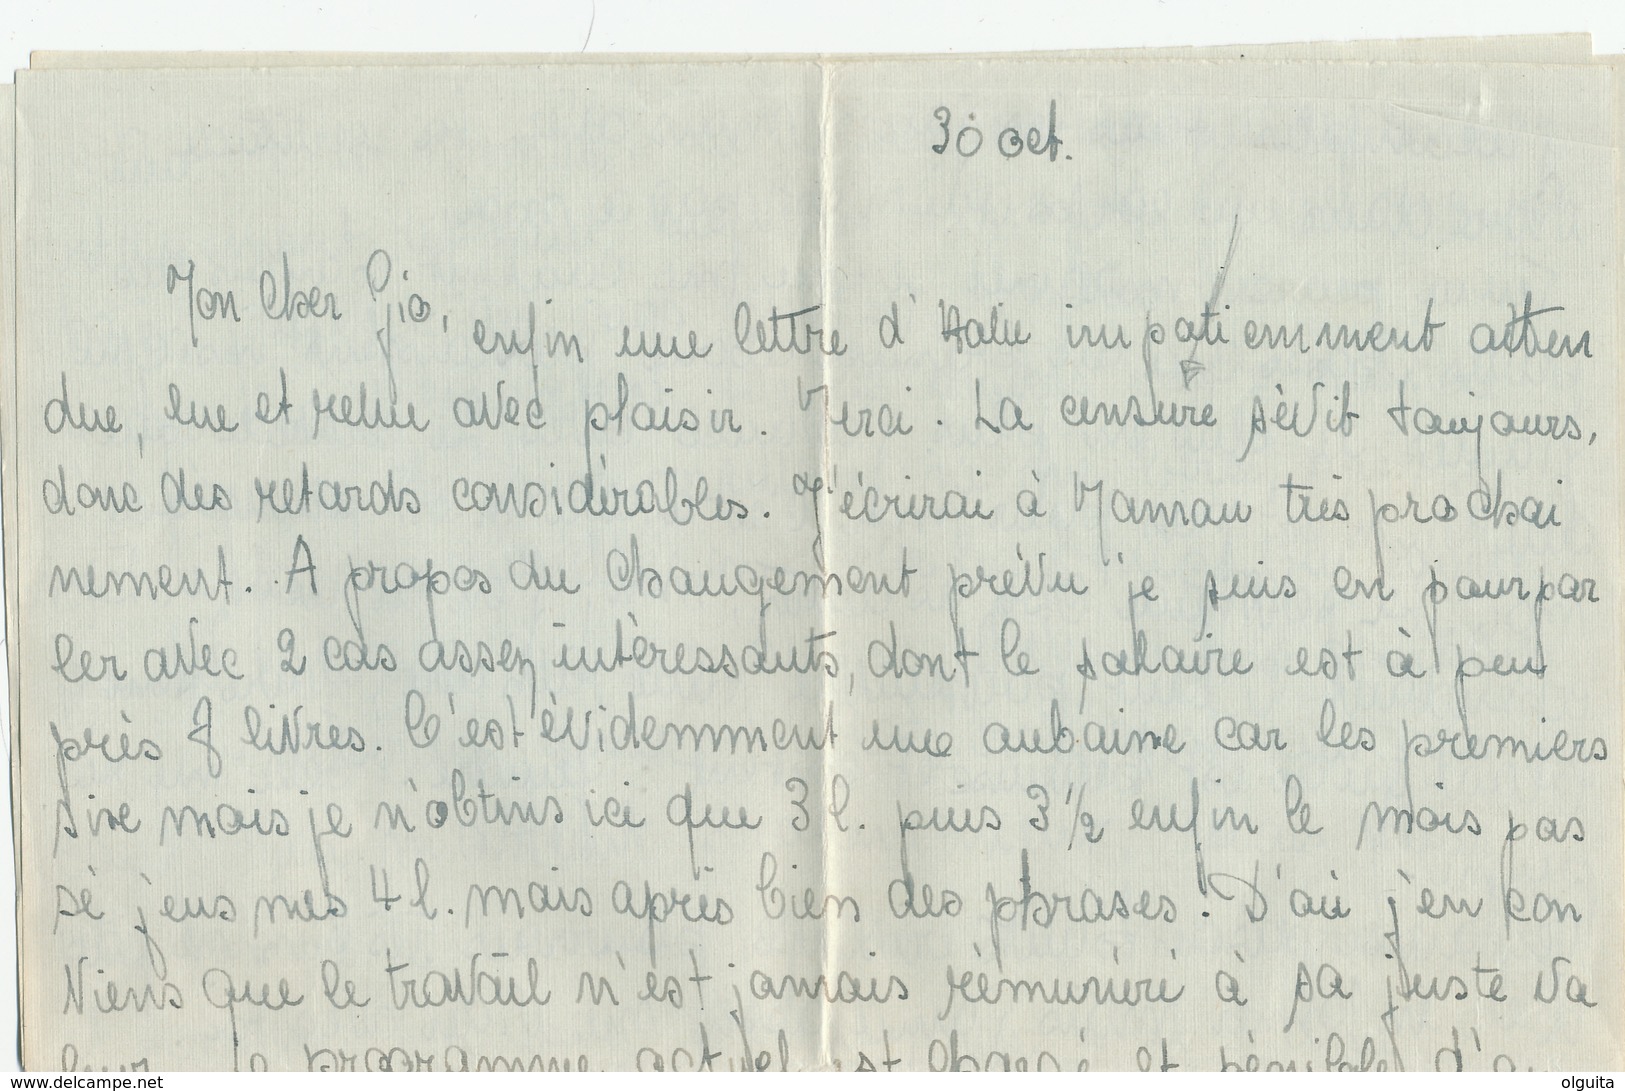 30 oct.
Mon Cher Gio,
enfin une lettre d'Italie impatiemment atten
due, lue et relue avec plaisir. Merci. La censure sévit toujours,
donc des retards considérables. J'écrirai à Maman très prochai
nement. A propos du Changement prévu je suis en pourpar
ler avec 2 cas assez intéressants, dont le salaire est à peu
près 8 livres. C'est évidemment une aubaine car les premiers
six mois je n'obtins ici que 3 l. puis 3 1/2 enfin le mois pas
sé j'eus mes 4 l. mais après bien des phrases! D'où j'en con
viens que le travail n'est jamais rémunéré à sa juste va
leur. Le programme actuel est chargé et pénible d'a
olguita